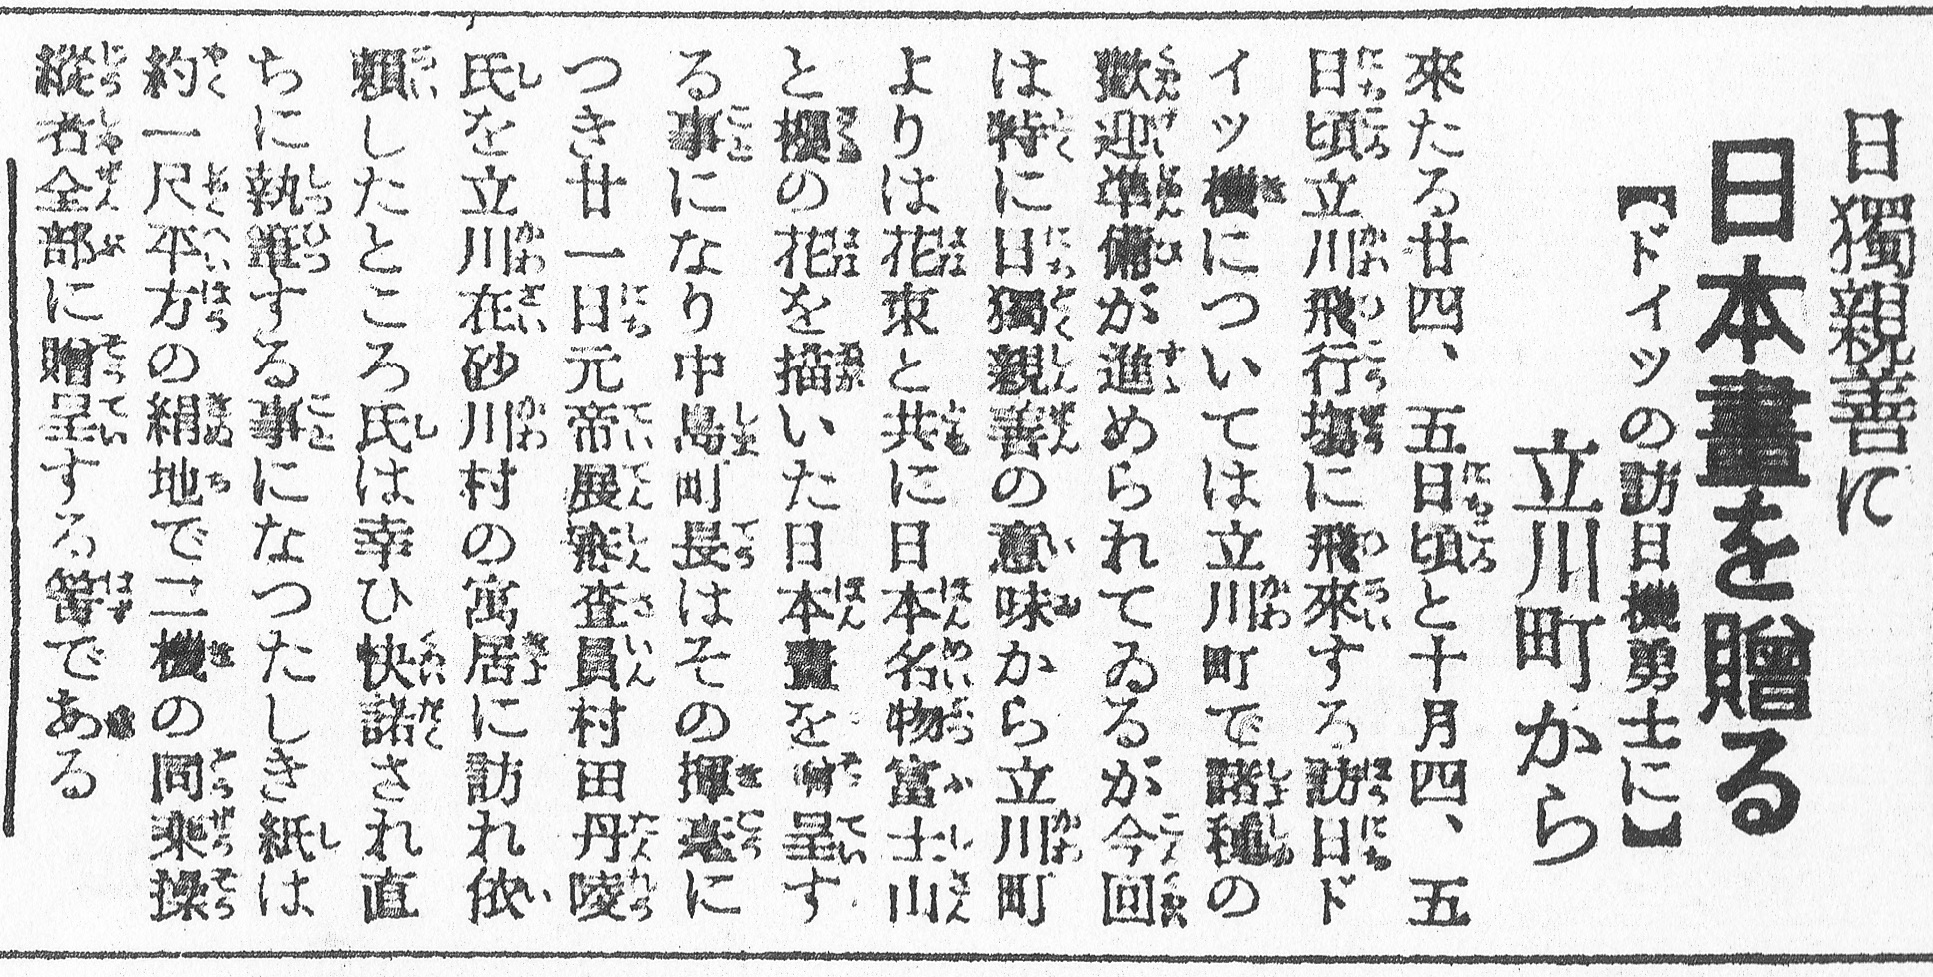 日獨親善に
日本畫を贈る
【ドイツの訪日機勇士に】
立川町から
來たる廿四、五日頃と十月四、五
日頃立川飛行塲に飛來する訪日ド
イツ機については立川町で諸種の
歡迎準備が進められてゐるが今回
は特に日獨親善の意味から立川町
よりは花束と共に日本名物富士山
と櫻の花を描いた日本畫を呈す
る事になり中島町長はその揮毫に
つき廿一日元帝展審査員村田丹陵
氏を立川在砂川村の寓居に訪れ依
頼したところ氏は幸ひ快諾され直
ちに執筆する事になつたしき紙は
約一尺平方の絹地で二機の同乘操
縱者全部に贈呈する筈である